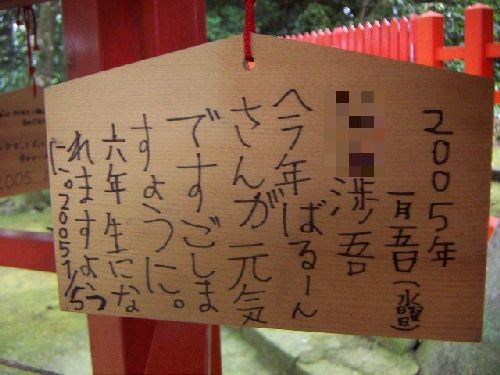 2005年
一月五日(水曜日)
渉吾
へ今年ばるーん
さんが元気
ですごしま
すように。
六年生にな
れますよう
に。2005 1/5
2005